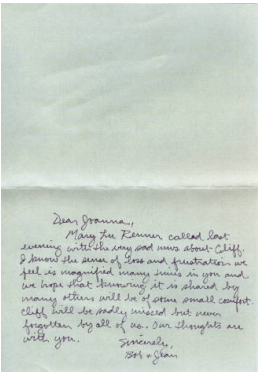 Dear Joanna,
Mary Lee Renner called last
evening with the very sad news about Cliff.
I know the sense of loss and frustration we
feel is magnified many times in you and
we hope that knowing it is shared by
many others will be of some small comfort.
Cliff will be sadly missed but never
forgotten by all of us. Our thoughts are
with you.
Sincerely,
Bob & Jean